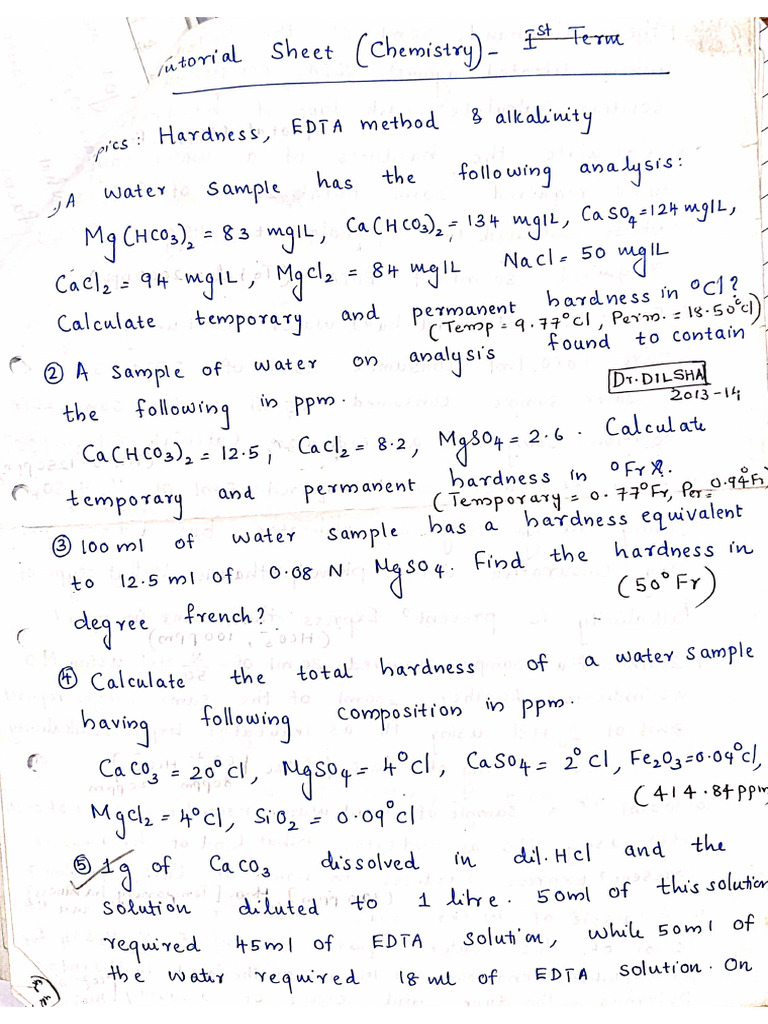 utorial Sheet (Chemistry)- Ist Term
pics: Hardness, EDTA method & alkalinity
1) A water sample has the following analysis:
Mg(HCO3)2 = 83 mg/L, Ca(HCO3)2 = 134 mg/L, CaSO4=124 mg/L,
CaCl2 = 94 mg/L, MgCl2 = 84 mg/L NaCl = 50 mg/L
Calculate temporary and permanent hardness in °Cl?
(Temp = 9.77°cl, Perm. = 18.50°cl)
② A sample of water on analysis found to contain
the following in ppm.
Dr. DILSHA
2013-14
Ca(HCO3)2 = 12.5, CaCl2 = 8.2, MgSO4 = 2.6. Calculate
temporary and permanent hardness in °Fr.
(Temporary = 0.77°Fr, Per= 0.94°Fr
③ 100 ml of water sample has a hardness equivalent
to 12.5 ml of 0.08 N MgSO4. Find the hardness in
degree french? (50° Fr)
④ Calculate the total hardness of a water sample
having following composition in ppm.
CaCO3 = 20°Cl, MgSO4 = 4°Cl, CaSO4 = 2°Cl, Fe2O3=0.04°cl,
MgCl2 = 4°Cl, SiO2 = 0.09°cl (414.84 ppm
⑤ 1g of CaCO3 dissolved in dil. HCl and the
solution diluted to 1 litre. 50ml of this solution
required 45ml of EDTA solution, while 50ml of
the water required 18 ml of EDTA solution. On